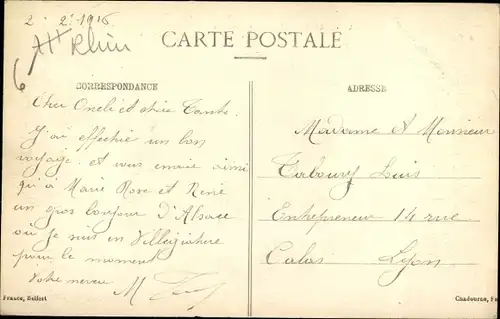 2. 2. 1916
Htt Rhin
6
CARTE POSTALE
CORRESPONDANCE
ADRESSE
Cher Oncle et chère Tante.
J'ai effectué un bon
voyage. et vous envoie ainsi
qu'à Marie Rose et René
un gros bonjour D'Alsace
où je suis en Villégiature
pour le moment
Votre neveu
M
Madame et Monsieur
Taboury Louis
Entrepreneur 14 rue
Calas Lyon
France, Belfort
Chadourne,